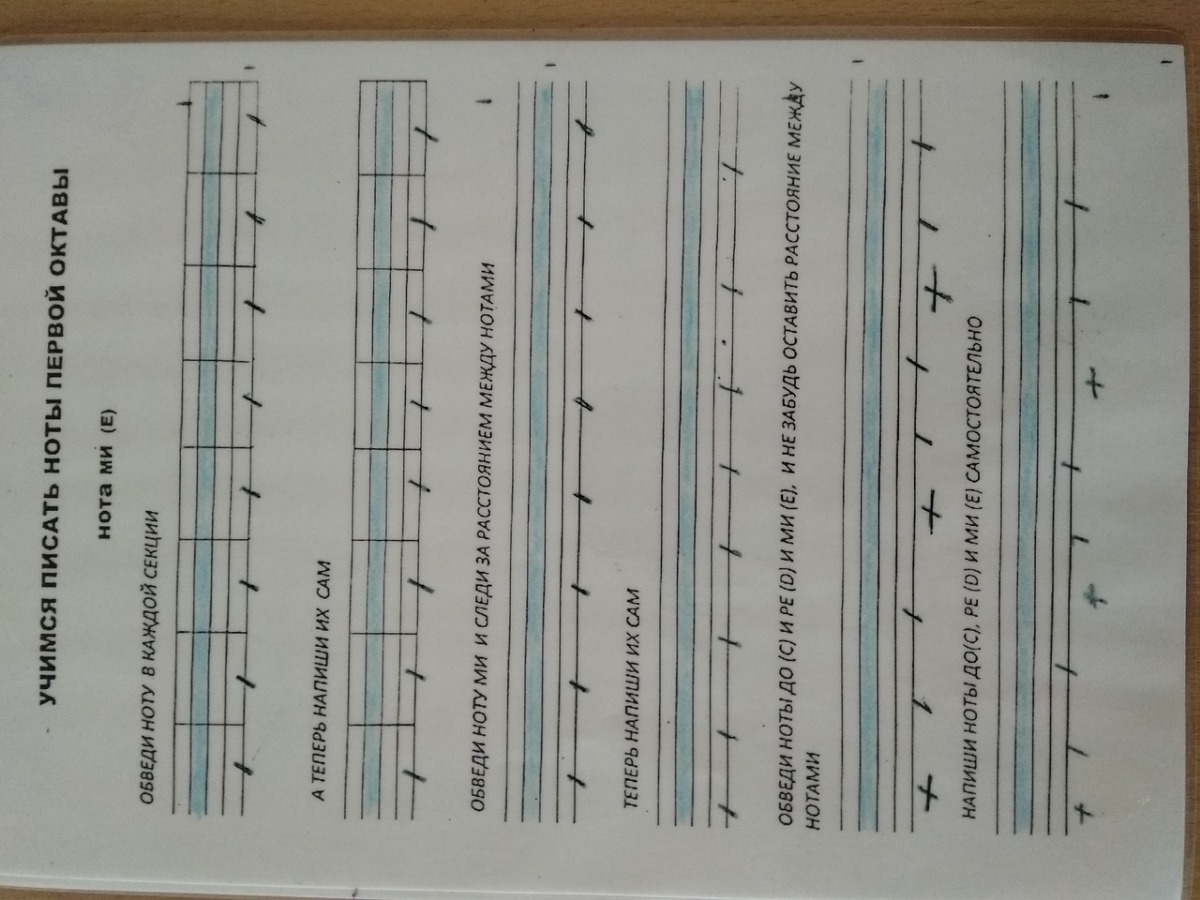 УЧИМСЯ ПИСАТЬ НОТЫ ПЕРВОЙ ОКТАВЫ
нота ми (Е)
ОБВЕДИ НОТУ В КАЖДОЙ СЕКЦИИ
А ТЕПЕРЬ НАПИШИ ИХ САМ
ОБВЕДИ НОТУ МИ И СЛЕДИ ЗА РАССТОЯНИЕМ МЕЖДУ НОТАМИ
ТЕПЕРЬ НАПИШИ ИХ САМ
ОБВЕДИ НОТЫ ДО (С) И РЕ (D) И МИ (Е), И НЕ ЗАБУДЬ ОСТАВИТЬ РАССТОЯНИЕ МЕЖДУ
НОТАМИ
НАПИШИ НОТЫ ДО(С), РЕ (D) И МИ (Е) САМОСТОЯТЕЛЬНО